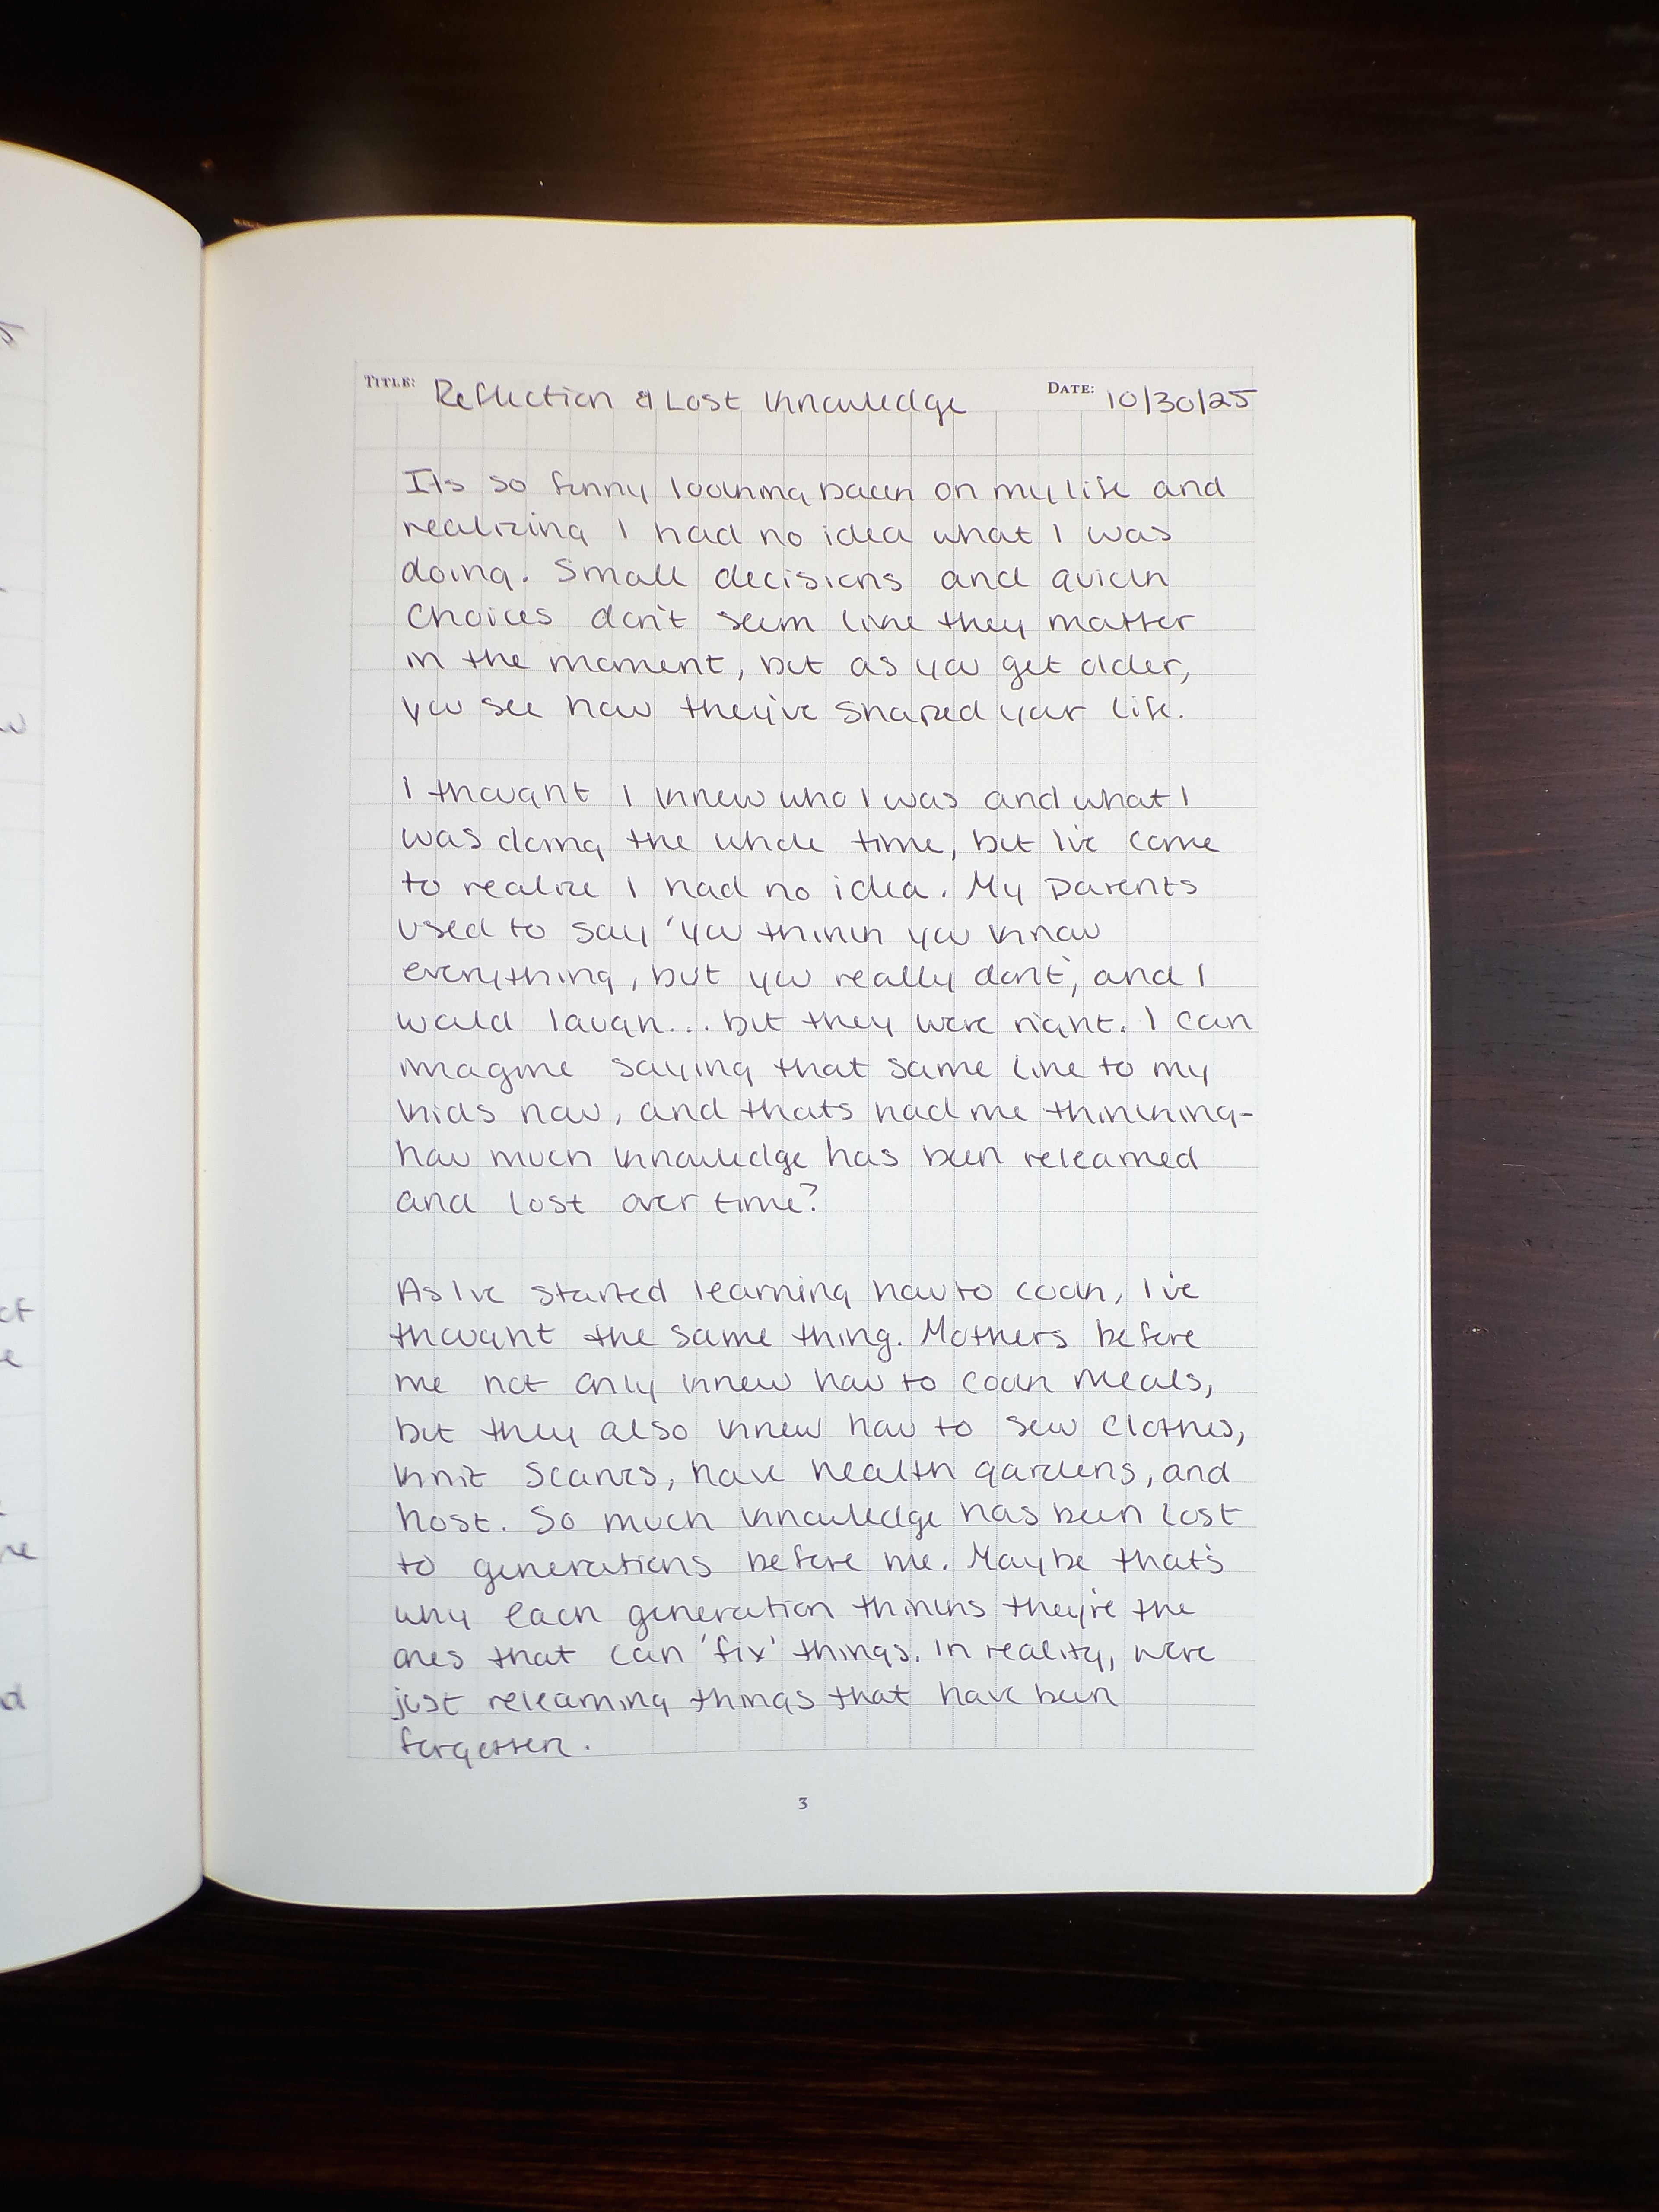 TITLE: Reflection & Lost Knowledge DATE: 10/30/25
Its so funny looking back on my life and
realizing I had no idea what I was
doing. Small decisions and quick
choices don't seem like they matter
in the moment, but as you get older,
you see how they've shaped your life.
I thought I knew who I was and what I
was doing the whole time, but I've come
to realize I had no idea. My parents
used to say 'you think you know
everything, but you really don't', and I
would laugh... but they were right. I can
imagine saying that same line to my
kids now, and thats had me thinking-
how much knowledge has been relearned
and lost over time?
As I've started learning how to cook, I've
thought the same thing. Mothers before
me not only knew how to cook meals,
but they also knew how to sew clothes,
knit scarves, have health gardens, and
host. So much knowledge has been lost
to generations before me. Maybe that's
why each generation thinks they're the
ones that can 'fix' things. In reality, were
just relearning things that have been
forgotten.
3